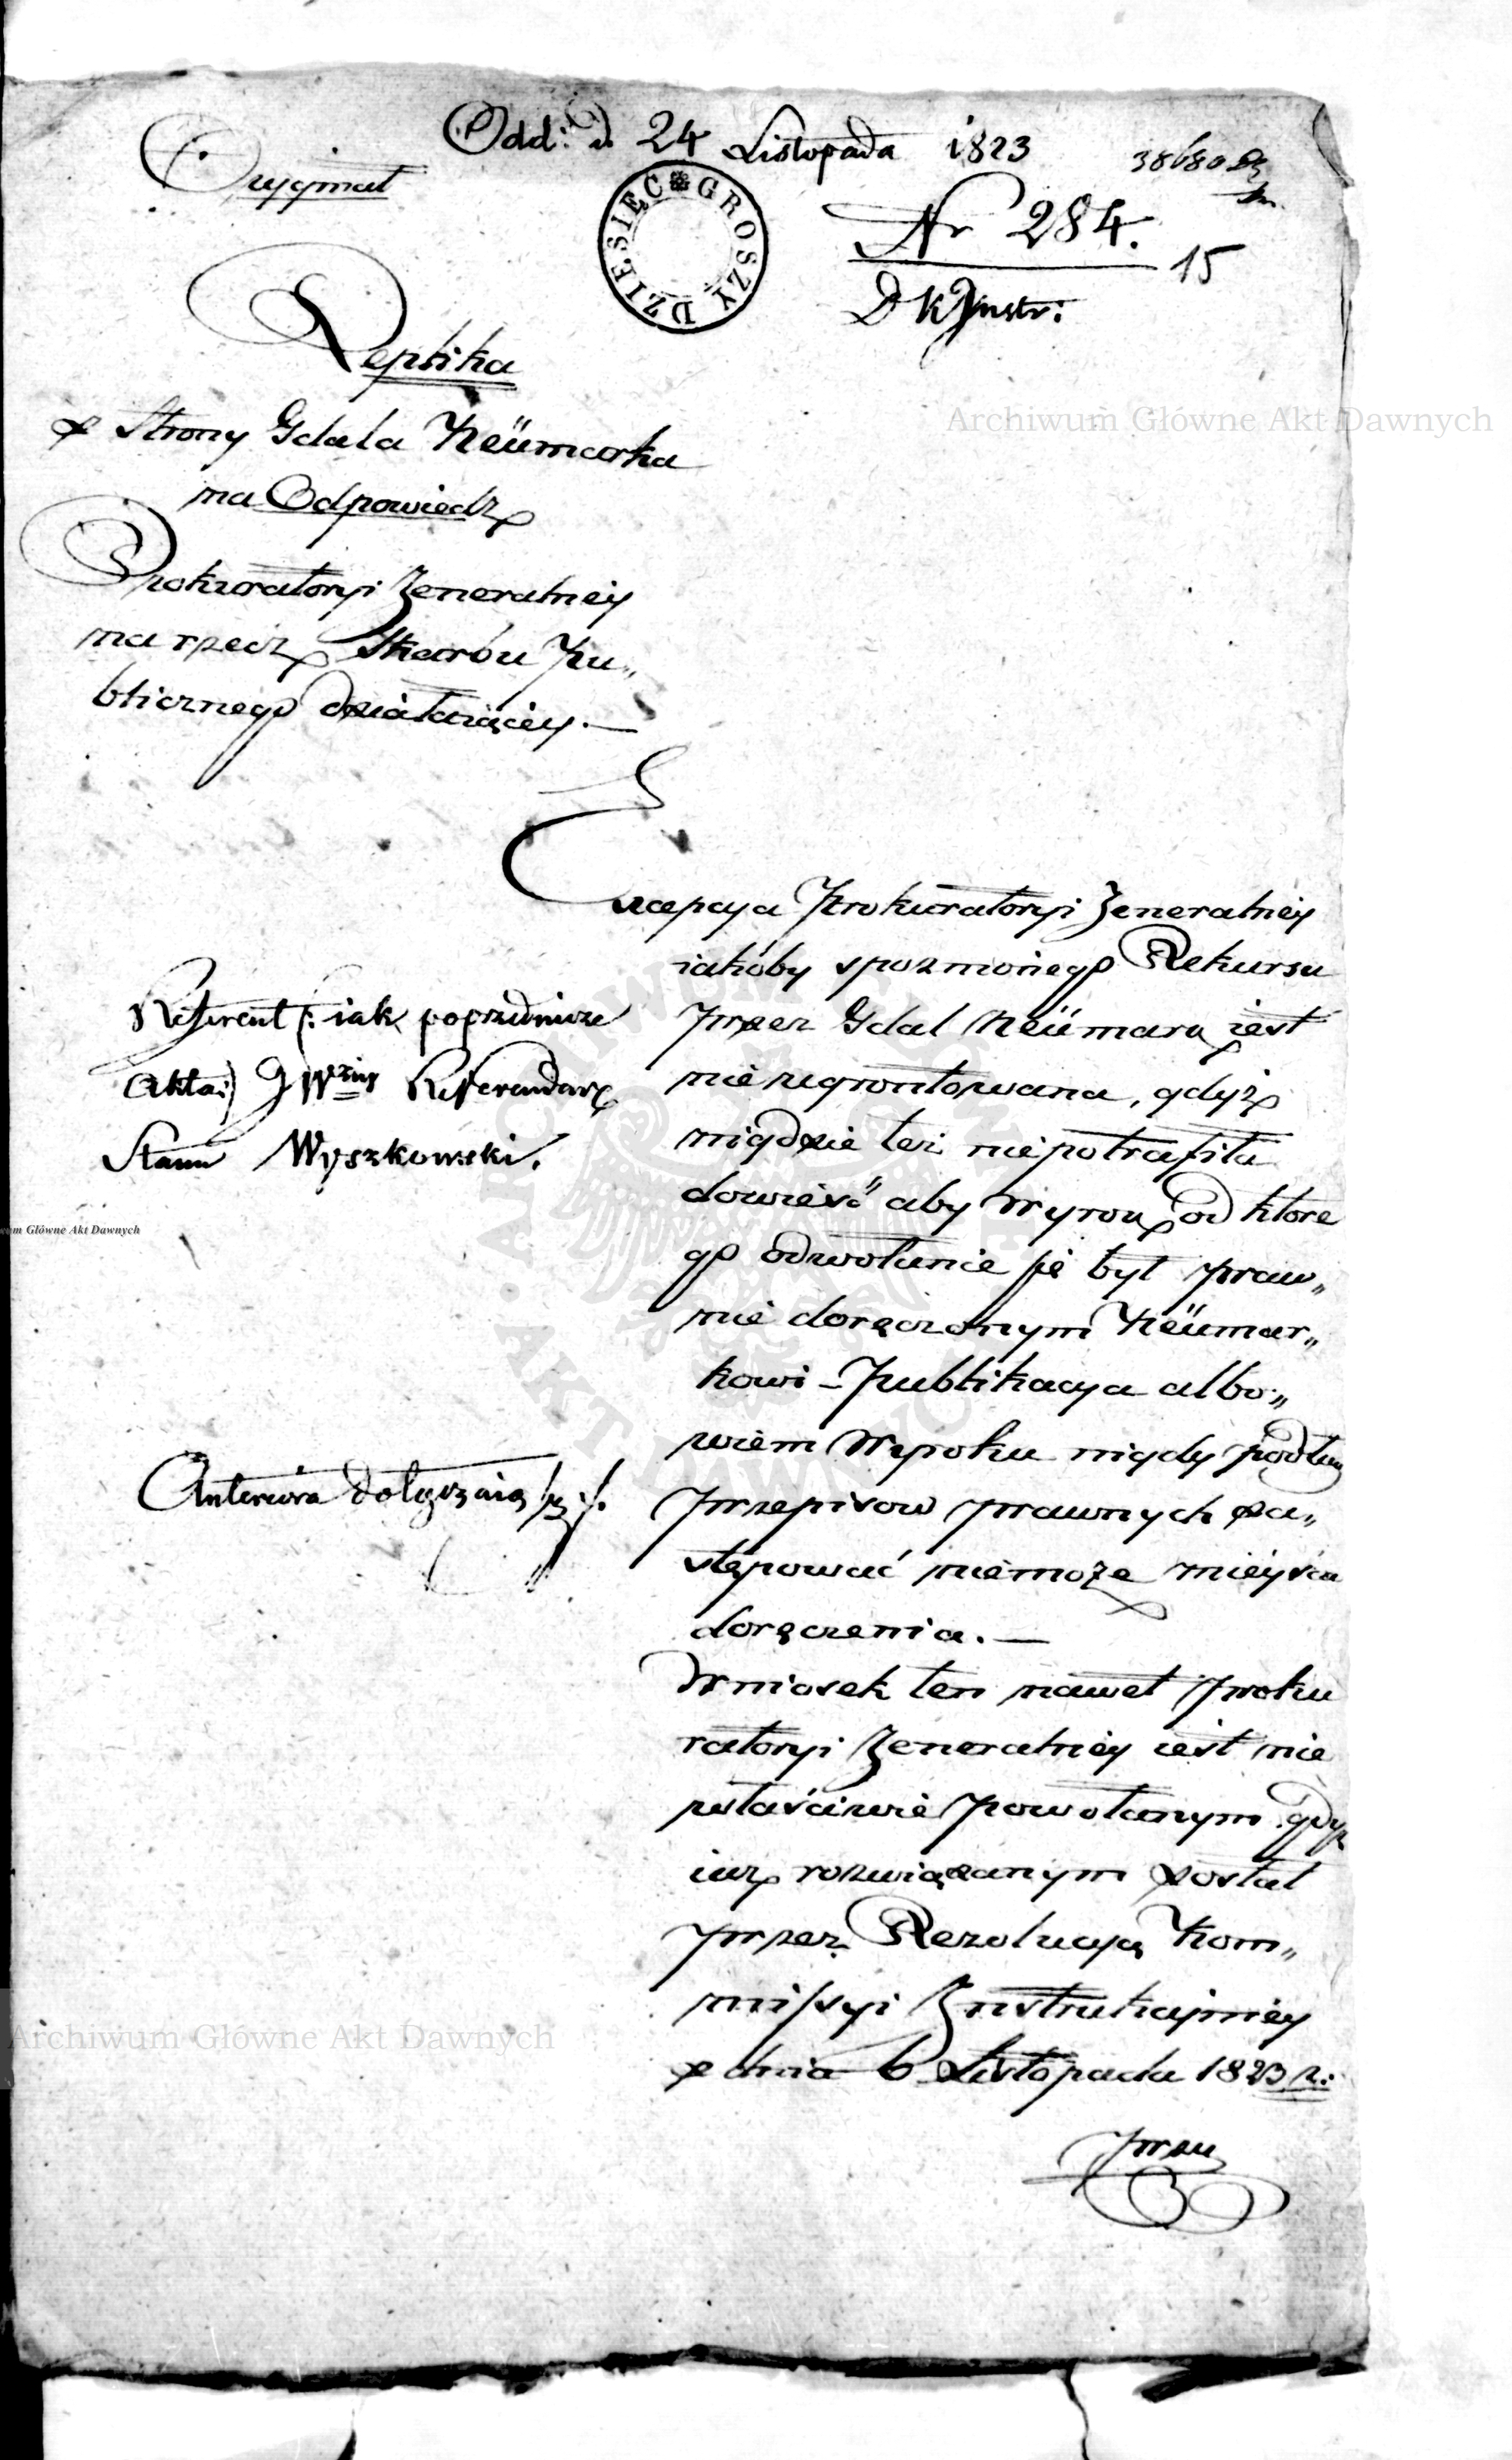 Odd: d. 24 Listopada 1823
38680
Oryginał
DZIESIĘC GROSZY
Nr 284.
15
D K Instr:
Replika
z Strony Gdala Neümarka
na Odpowiedz
Prokuratoryi Jeneralney
na rzecz Skarbu Pu„
blicznego działaiącey. —
Excepcya Prokuratoryi Jeneralney
iakoby spoznionego Rekursu
przez Gdal Neümark iest
nieugrontowana, gdyż
nigdzie też niepotrafiła
dowieść aby Wyrok od które
go odwołanie się był praw„
nie doręczonym Neümar„
kowi – Publikacya albo„
wiem Wyroku nigdy podług
przepisow prawnych za„
stępować niemoże mieysca
doręczenia. —
Wniosek ten nawet Proku
ratoryi Jeneralney iest nie
właściwie powołanym gdyż
iuż rozwiązanym został
przez Rezolucyą Kom„
missyi Instrukcyiney
z dnia 6 Listopada 1823 r:
przy
Referent (: iak poprzednicze
Akta:) JW Referendarz
Stanu Wyszkowski.
Anteriora dołączaią się.
Archiwum Główne Akt Dawnych
um Główne Akt Dawnych
Archiwum Główne Akt Dawnych
ARCHIWUM GŁÓWNE AKT DAWNYCH